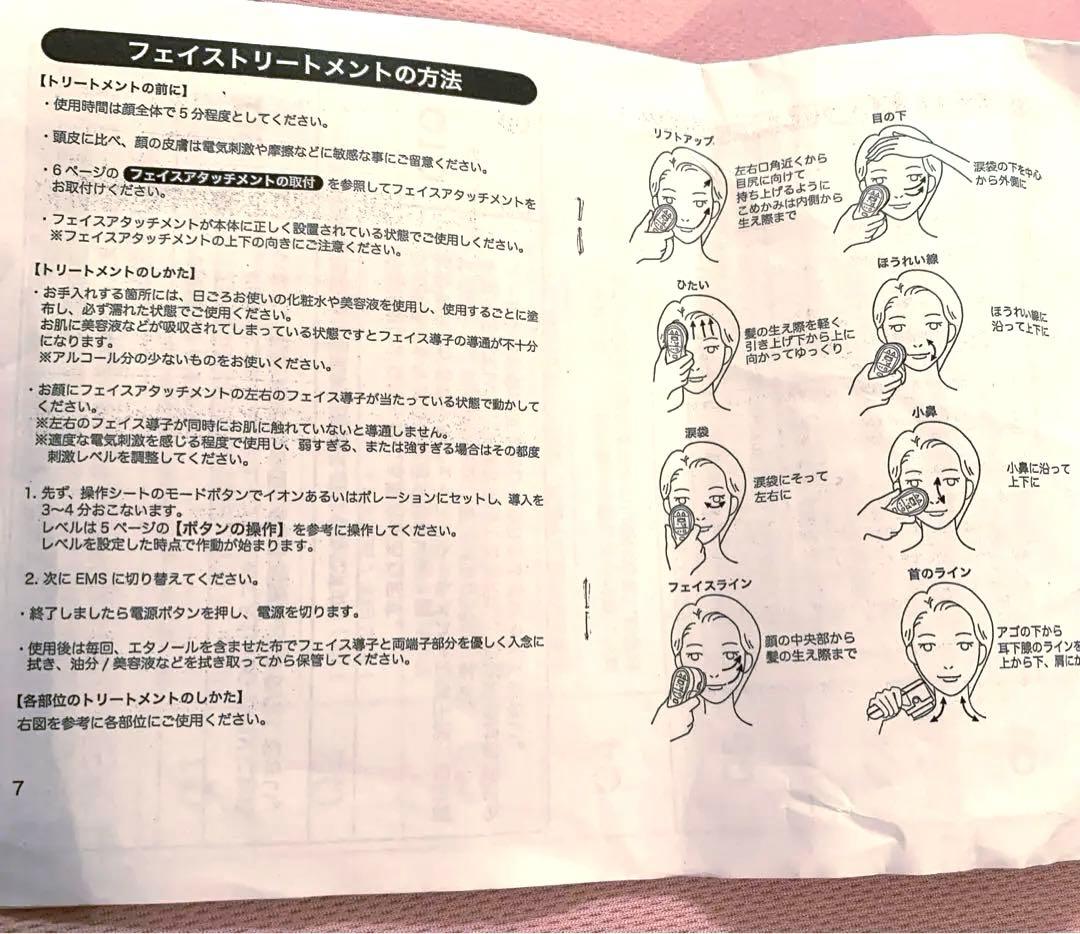 フェイストリートメントの方法
【トリートメントの前に】
・使用時間は顔全体で5分程度としてください。
・頭皮に比べ、顔の皮膚は電気刺激や摩擦などに敏感な事にご留意ください。
・6ページの フェイスアタッチメントの取付 を参照してフェイスアタッチメントを
お取付けください。
・フェイスアタッチメントが本体に正しく設置されている状態でご使用しください。
※フェイスアタッチメントの上下の向きにご注意ください。
【トリートメントのしかた】
・お手入れする箇所には、日ごろお使いの化粧水や美容液を使用し、使用するごとに塗
布し、必ず濡れた状態でご使用ください。
お肌に美容液などが吸収されてしまっている状態ですとフェイス導子の導通が不十分
になります。
※アルコール分の少ないものをお使いください。
・お顔にフェイスアタッチメントの左右のフェイス導子が当たっている状態で動かして
ください。
※左右のフェイス導子が同時にお肌に触れていないと導通しません。
※適度な電気刺激を感じる程度で使用し、弱すぎる、または強すぎる場合はその都度
刺激レベルを調整してください。
1. 先ず、操作シートのモードボタンでイオンあるいはポレーションにセットし、導入を
3〜4分おこないます。
レベルは5ページの【ボタンの操作】を参考に操作してください。
レベルを設定した時点で作動が始まります。
2. 次にEMSに切り替えてください。
・終了しましたら電源ボタンを押し、電源を切ります。
・使用後は毎回、エタノールを含ませた布でフェイス導子と両端子部分を優しく入念に
拭き、油分/美容液などを拭き取ってから保管してください。
【各部位のトリートメントのしかた】
右図を参考に各部位にご使用ください。
7
リフトアップ
左右口角近くから
目尻に向けて
持ち上げるように
こめかみは内側から
生え際まで
目の下
涙袋の下を中心
から外側に
ひたい
髪の生え際を軽く
引き上げ下から上に
向かってゆっくり
ほうれい線
ほうれい線に
沿って上下に
涙袋
涙袋にそって
左右に
小鼻
小鼻に沿って
上下に
フェイスライン
顔の中央部から
髪の生え際まで
首のライン
アゴの下から
耳下腺のラインを
上から下、肩にか